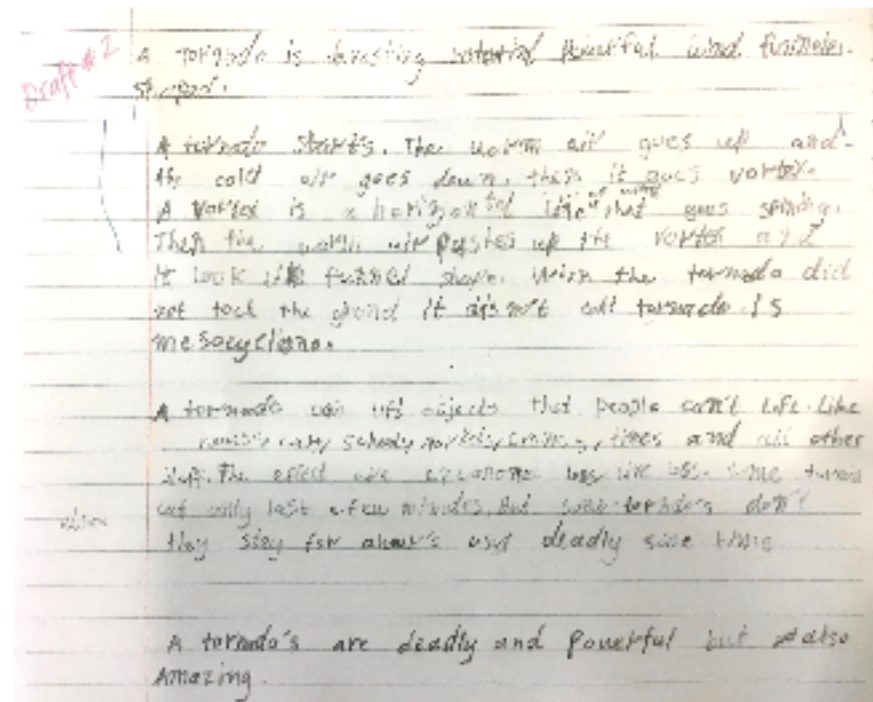 Draft #2
A tornado is devasting natural powerful wind funnel
shaped.
A tornado starts. The worm air goes up and
the cold air goes down, then it goes vortex.
A vortex is a horizontal that goes spining.
Then the worm air pushes up the vortex and
it look like funnel shape. When the tornado did
not toch the ground it call tornado. Is
mesocyclone.
A tornado can lift objects that people can't lift. Like
and all other
stuff. The effect are some
only last a few minutes. But some don't
they stay for and deadly some time
A tornado's are deadly and powerful but also
Amazing.